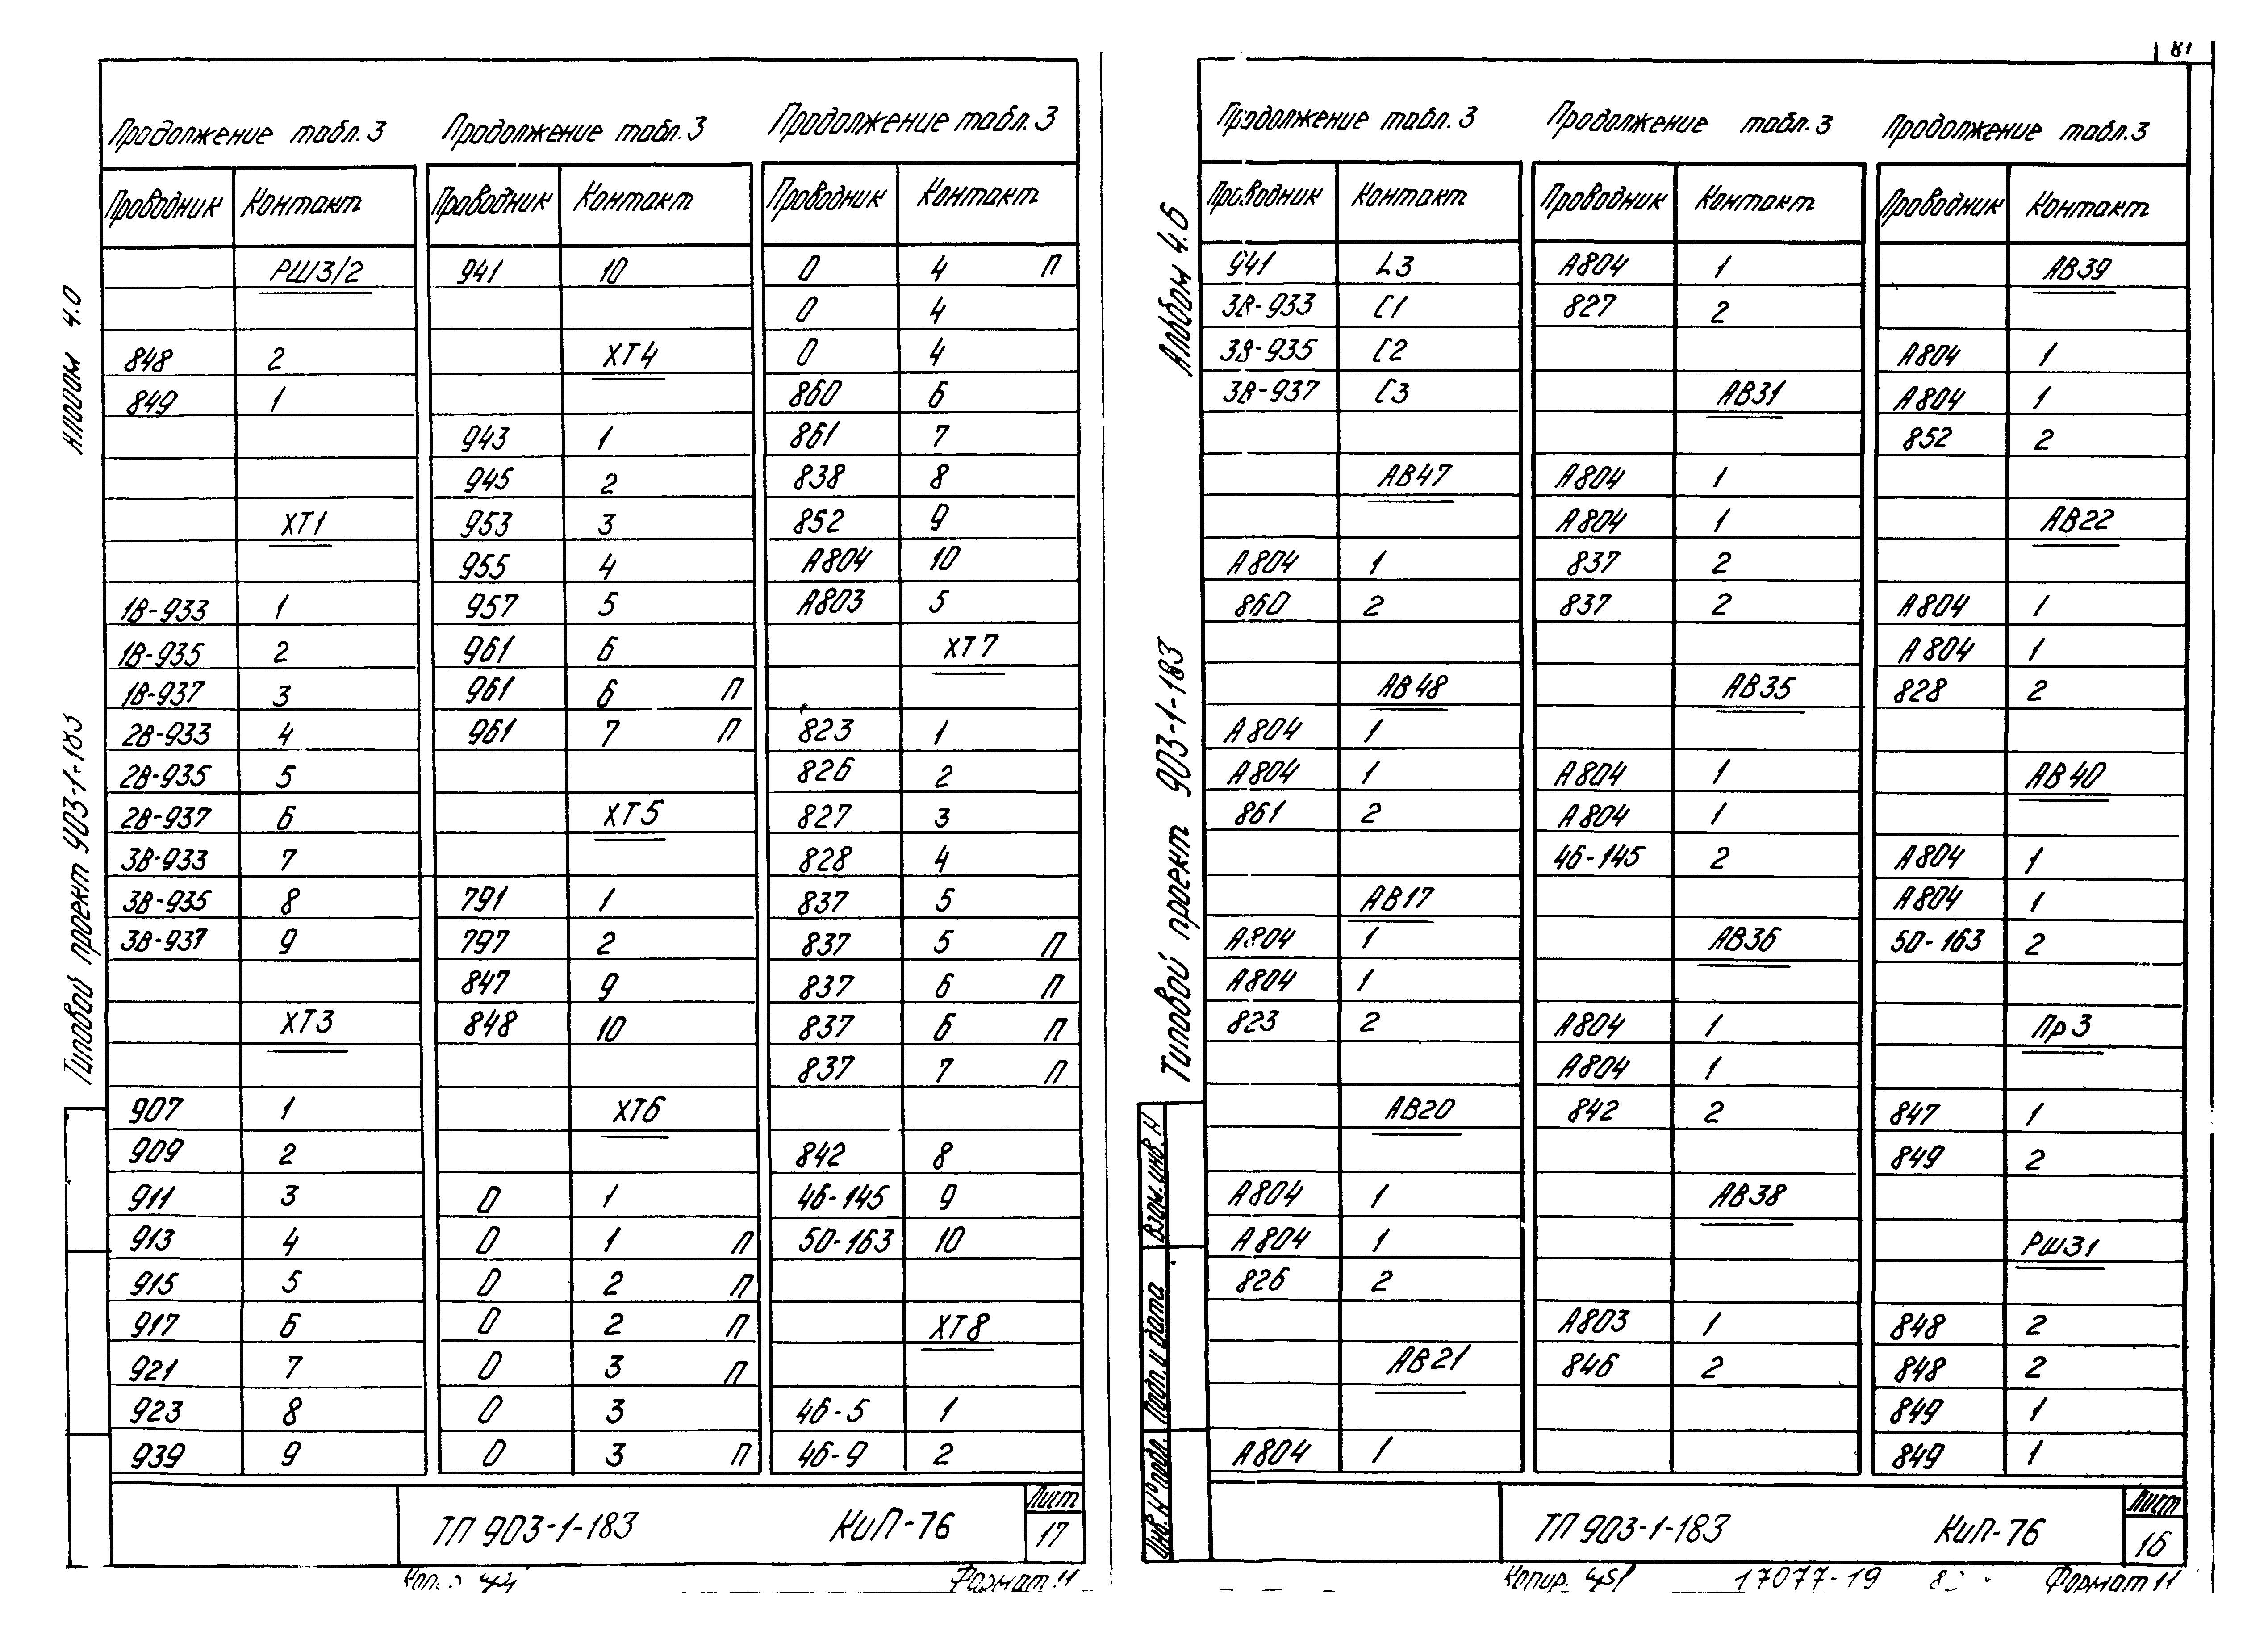 81
Продолжение табл. 3
Проводник Контакт
РШ3/2
848 2
849 1
ХТ1
1В-933 1
1В-935 2
1В-937 3
2В-933 4
2В-935 5
2В-937 6
3В-933 7
3В-935 8
3В-937 9
ХТ3
907 1
909 2
911 3
913 4
915 5
917 6
921 7
923 8
939 9
Продолжение табл. 3
Проводник Контакт
941 10
ХТ4
943 1
945 2
953 3
955 4
957 5
961 6
961 6 П
961 7 П
ХТ5
791 1
797 2
847 9
848 10
ХТ6
0 1
0 1 П
0 2 П
0 2 П
0 3 П
0 3
0 3 П
Продолжение табл. 3
Проводник Контакт
0 4 П
0 4
0 4
860 6
861 7
838 8
852 9
А804 10
А803 5
ХТ7
823 1
826 2
827 3
828 4
837 5
837 5 П
837 6 П
837 6 П
837 7 П
842 8
4б-145 9
50-163 10
ХТ8
4б-5 1
4б-9 2
Типовой проект 903-1-183
4.0
ТП 903-1-183 КиП-76
Лист
17
Формат 11
Продолжение табл. 3
Проводник Контакт
941 L3
3В-933 С1
3В-935 С2
3В-937 С3
АВ47
А804 1
860 2
АВ48
А804 1
А804 1
861 2
АВ17
А804 1
А804 1
823 2
АВ20
А804 1
А804 1
826 2
АВ21
А804 1
Продолжение табл. 3
Проводник Контакт
А804 1
827 2
АВ31
А804 1
А804 1
837 2
837 2
АВ35
А804 1
А804 1
4б-145 2
АВ36
А804 1
А804 1
842 2
АВ38
А803 1
846 2
Продолжение табл. 3
Проводник Контакт
АВ39
А804 1
А804 1
852 2
АВ22
А804 1
А804 1
828 2
АВ40
А804 1
А804 1
50-163 2
Пр3
847 1
849 2
РШ31
848 2
848 2
849 1
849 1
Альбом 4.6
Типовой проект 903-1-183
Взам. инв. N
Подп. и дата
Инв. N° подл.
ТП 903-1-183 КиП-76
Лист
16
Копир. 17077-19 Формат 11